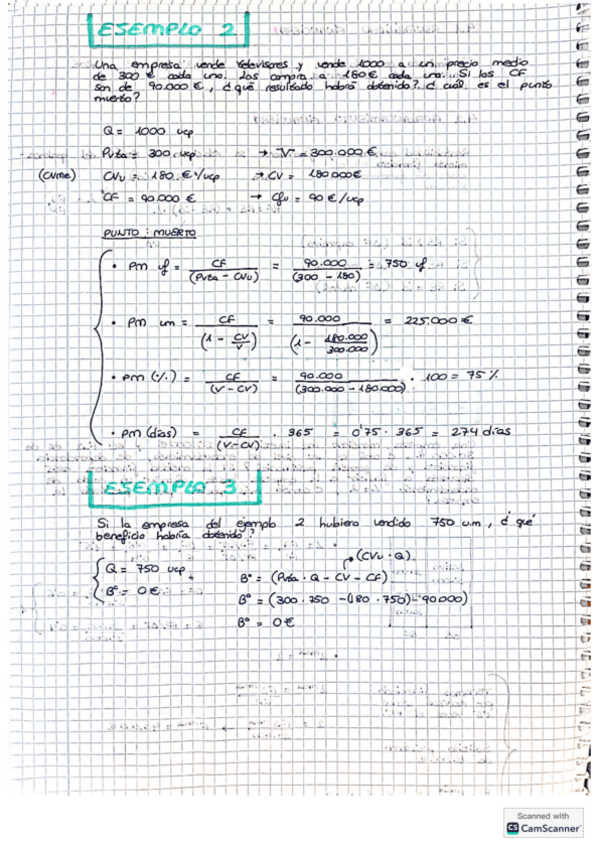 EJEMPLO 2
Una empresa vende televisores y vende 1000 a un precio medio
de 300 € cada uno. Los compra a 180€ cada uno. Si los CF
son de 90.000 €, ¿qué resultado habrá obtenido? ¿cuál es el punto
muerto?
Q = 1000 ucp
Pvta = 300 ucp → V = 300.000 €
(CVme) CVu = 180 €/ucp → CV = 180.000€
CF = 90.000 € → CFu = 90 €/ucp
PUNTO MUERTO
• PM uf = CF / (Pvta - CVu) = 90.000 / (300 - 180) = 750 uf
• PM um = CF / (1 - CV/V) = 90.000 / (1 - 180.000/300.000) = 225.000 €
• PM (%) = CF / (V - CV) = 90.000 / (300.000 - 180.000) · 100 = 75 %
• PM (días) = CF / (V - CV) · 365 = 0'75 · 365 = 274 días
EJEMPLO 3
Si la empresa del ejemplo 2 hubiera vendido 750 u.m, ¿qué
beneficio habría obtenido?
(CVu · Q)
Q = 750 ucp
Bº = (Pvta · Q - CV - CF)
Bº = 0€
Bº = (300 · 750 - (180 · 750) - 90000)
Bº = 0€
Scanned with
CS CamScanner